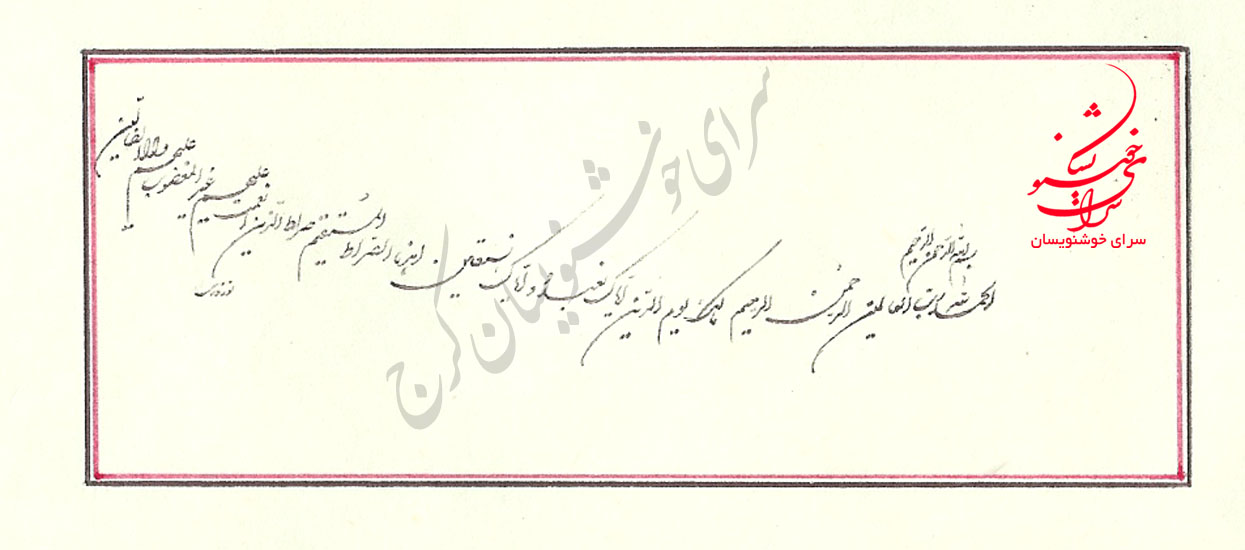 سرای خوشنویسان
سرای خوشنویسان
بسم الله الرحمن الرحیم
الحمد لله رب العالمین الرحمن الرحیم مالک یوم الدین ایاک نعبد و ایاک نستعین اهدنا الصراط المستقیم صراط الذین انعمت علیهم غیر المغضوب علیهم ولا الضالین
سرای خوشنویسان کرج